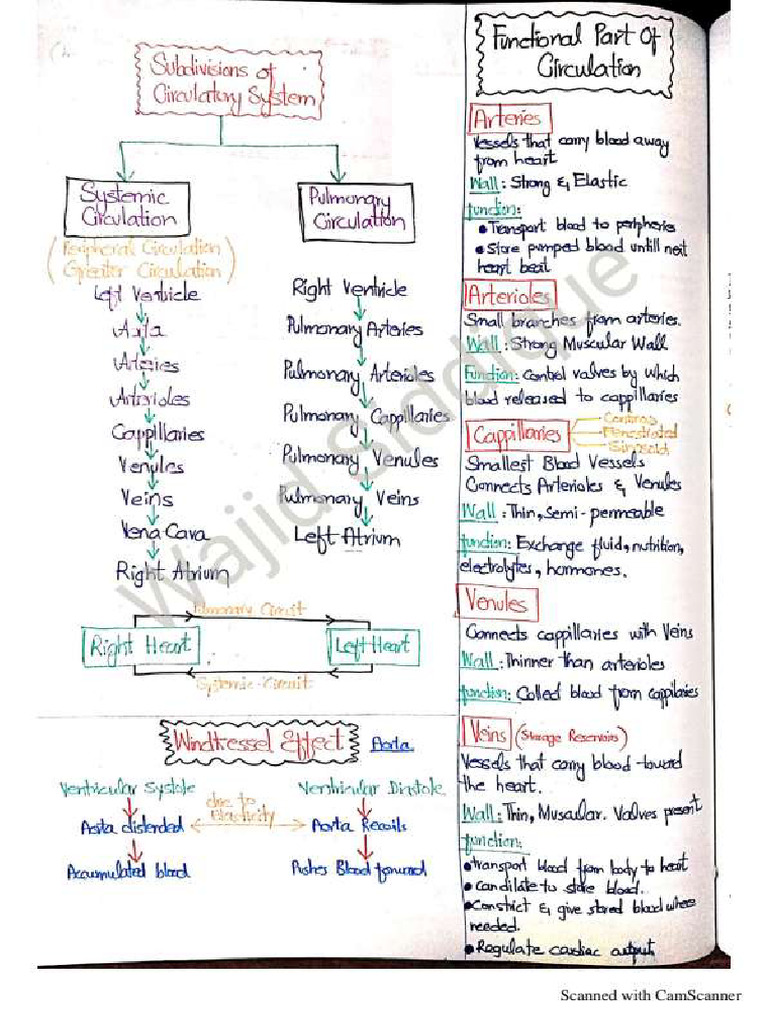 Subdivisions of
Circulatory System
Systemic
Circulation
Pulmonary
Circulation
(Peripheral Circulation
Greater Circulation)
Left Ventricle
Aorta
Arteries
Arterioles
Cappillaries
Venules
Veins
Vena Cava
Right Atrium
Right Ventricle
Pulmonary Arteries
Pulmonary Arterioles
Pulmonary Cappillaries
Pulmonary Venules
Pulmonary Veins
Left Atrium
Pulmonary Circuit
Right Heart
Left Heart
Systemic Circuit
Windkessel Effect
Aorta
Ventricular Systole
Aorta distended
Accumulated blood
due to
Elasticity
Ventricular Diastole
Aorta Recoils
Pushes Blood forward
Functional Part Of
Circulation
Arteries
Vessels that carry blood away
from heart
Wall: Strong & Elastic
function:
• Transport blood to peripheries
• Store pumped blood untill next
heart beat
Arterioles
Small branches from arteries.
Wall: Strong Muscular Wall
Function: Control valves by which
blood released to cappillaries
Cappillaries
Fenestrated
Sinusoid
Smallest Blood Vessels
Connects Arterioles & Venules
Wall: Thin, Semi-permeable
function: Exchange fluid, nutrition,
electrolytes, hormones.
Venules
Connects cappillaries with Veins
Wall: Thinner than arterioles
function: Collect blood from cappilaries
Veins (Storage Reservoirs)
Vessels that carry blood toward
the heart.
Wall: Thin, Muscular. Valves present
function:
• transport blood from body to heart
• to store blood.
• Constrict & give stored blood when
needed.
• Regulate cardiac output
Wajid Siddique
Scanned with CamScanner